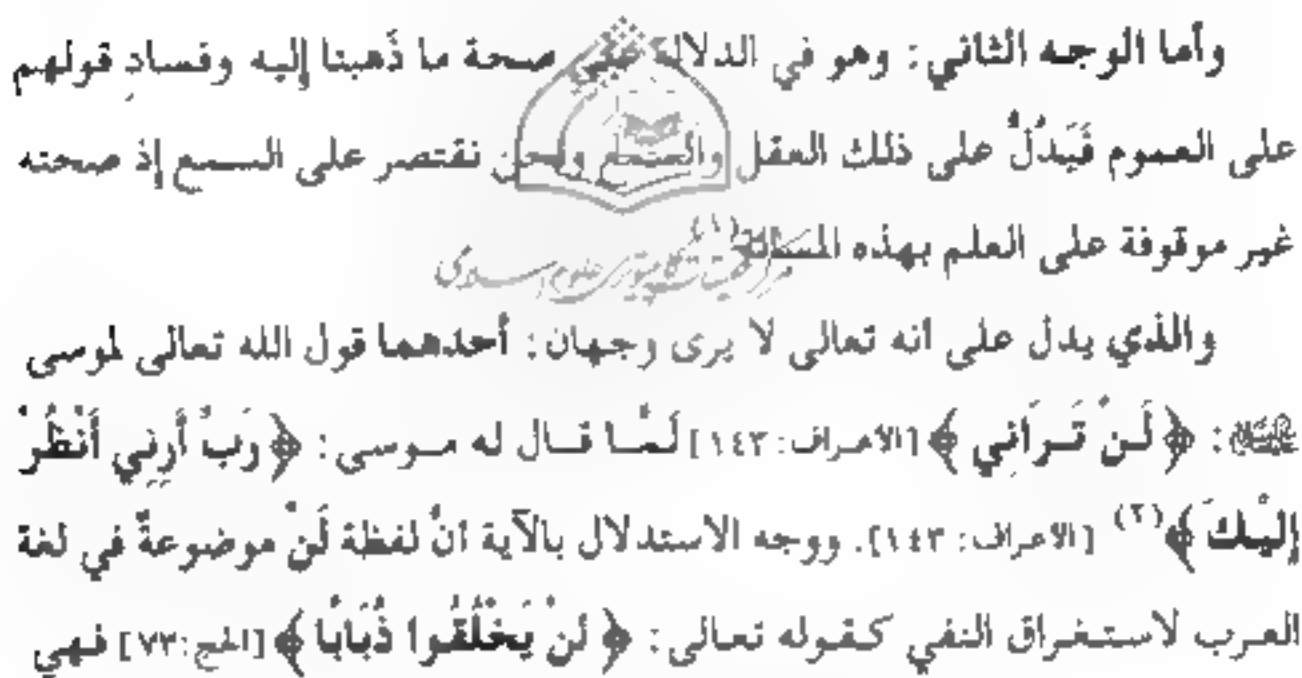 وأما الوجه الثاني: وهو في الدلالة على صحة ما ذَهبنا إليه وفسادِ قولهم
على العموم فَيَدُلُّ على ذلك العقل والسمع ونحن نقتصر على السمع إذ صحته
غير موقوفة على العلم بهذه المسألة(١)
مركز تحقيقات كامپيوتری علوم اسلامی
والذي يدل على انه تعالى لا يرى وجهان: أحدهما قول الله تعالى لموسى
﴿ لَنْ تَرَانِي ﴾ [الاعراف: ١٤٣] لَمَّا قال له موسى: ﴿ رَبِّ أَرِنِي أَنْظُرْ :
إِلَيْكَ ﴾(٢) [الاعراف: ١٤٣]. ووجه الاستدلال بالآية انَّ لفظة لَنْ موضوعةٌ في لغة
العرب لاستغراق النفي كقوله تعالى: ﴿ لَنْ يَخْلُقُوا ذُبَابًا ﴾ [الحج: ٧٣] فهي